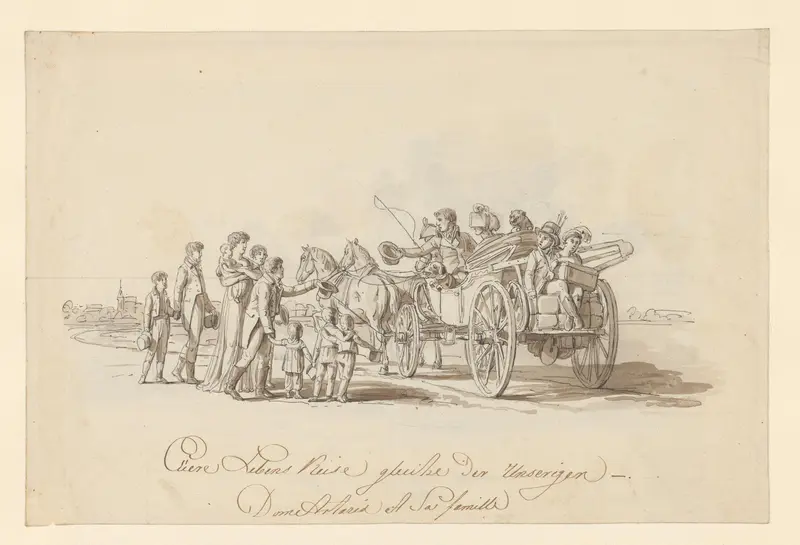 Eüere Lebens Reise gleiche Der Unserigen —.
Dom Artaria et Sa famille